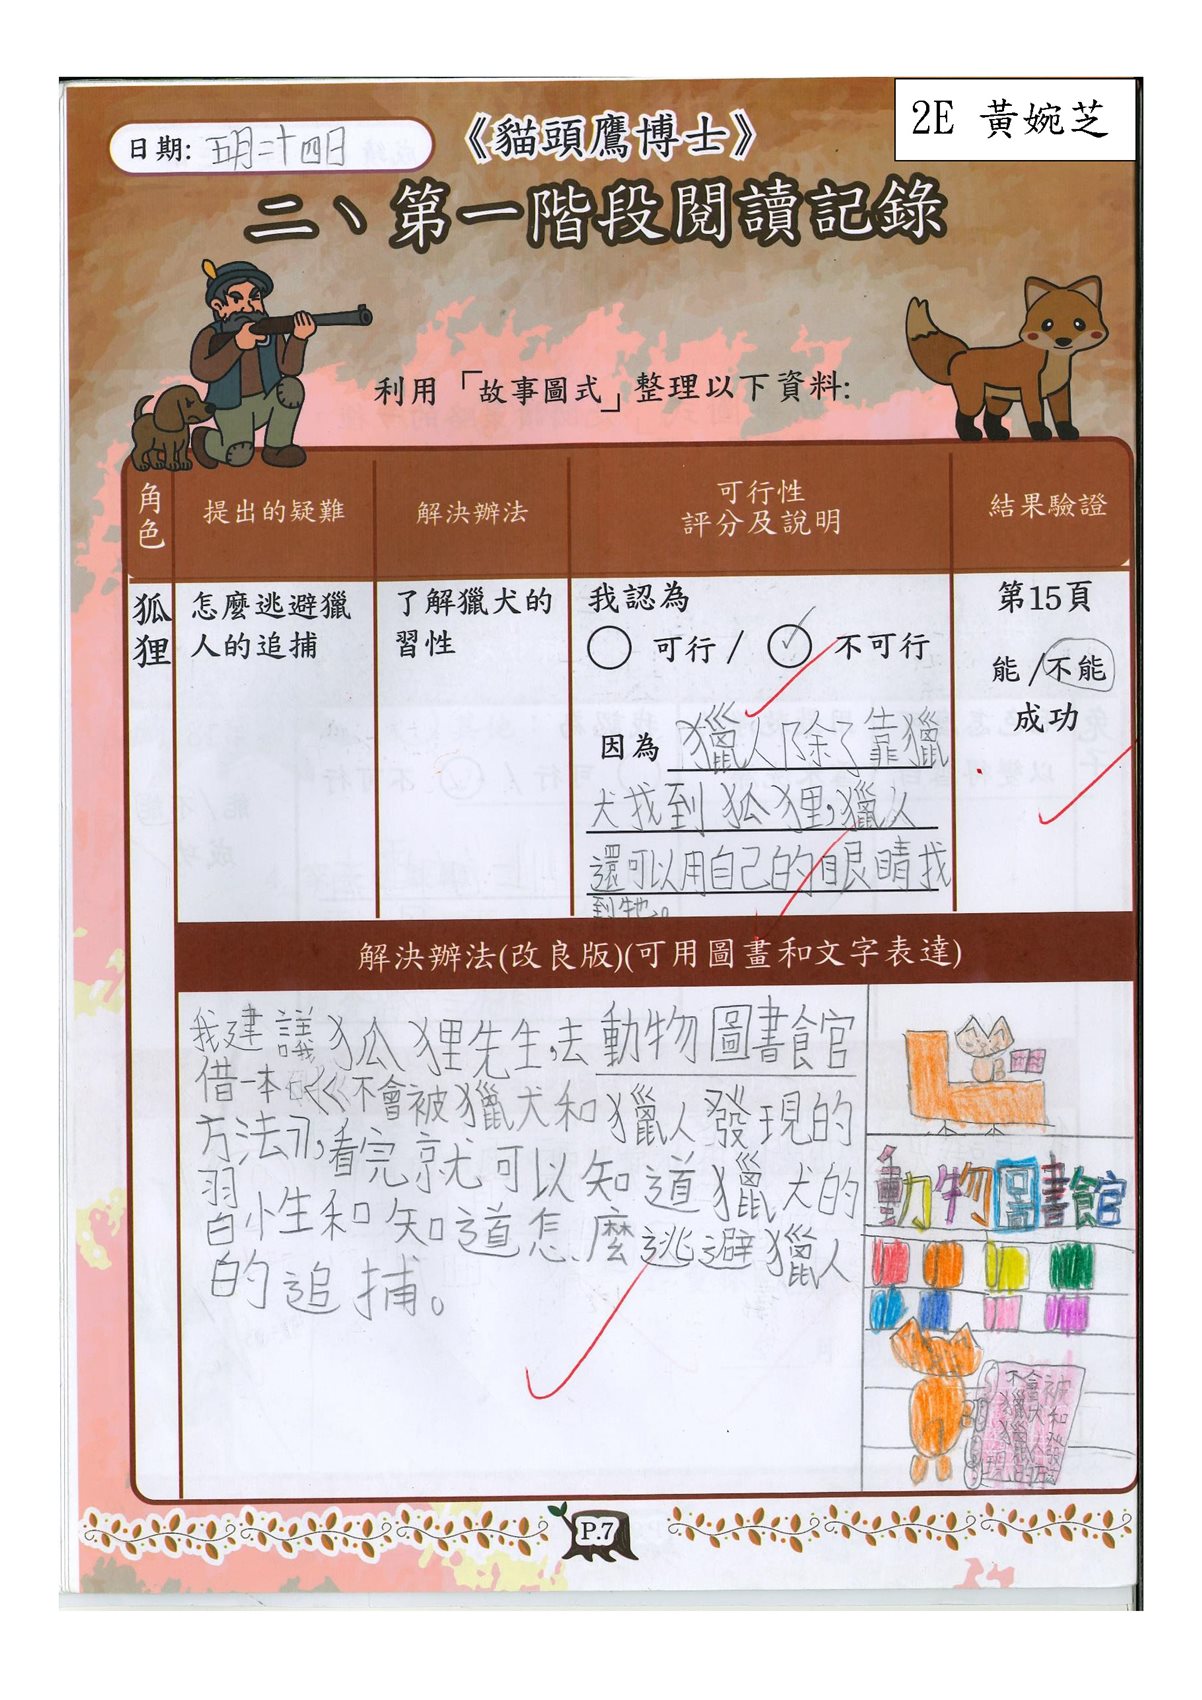 2E 黃婉芝
日期: 五月二十四日
《貓頭鷹博士》
二、第一階段閱讀記錄
利用「故事圖式」整理以下資料:
角色
提出的疑難
解決辦法
可行性
評分及說明
結果驗證
狐狸
怎麼逃避獵
人的追捕
了解獵犬的
習性
我認為
可行 / ✓ 不可行
因為 獵人除了靠獵
犬找到狐狸,獵人
還可以用自己的眼睛找
到牠。
第15頁
能/不能
成功
解決辦法(改良版)(可用圖畫和文字表達)
我建議狐狸先生,去動物圖書館
借一本《不會被獵犬和獵人發現的
方法》,看完就可以知道獵犬的
習性和知道怎麼逃避獵人
的追捕。
動物圖書館
不會被
獵犬和
獵人發
現的方法
P.7